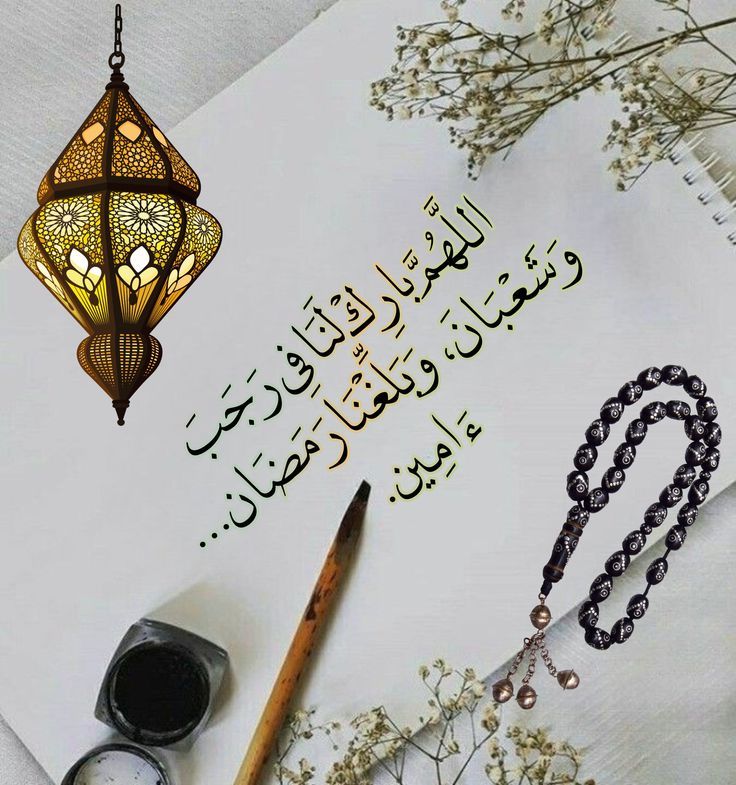 اللَّهُمَّ بَّارِكْ لَنَا فِي رَجَبَ
وَشَعْبَانَ، وَبَلِّغْنَا رَمَضَان...
ءَامِين.